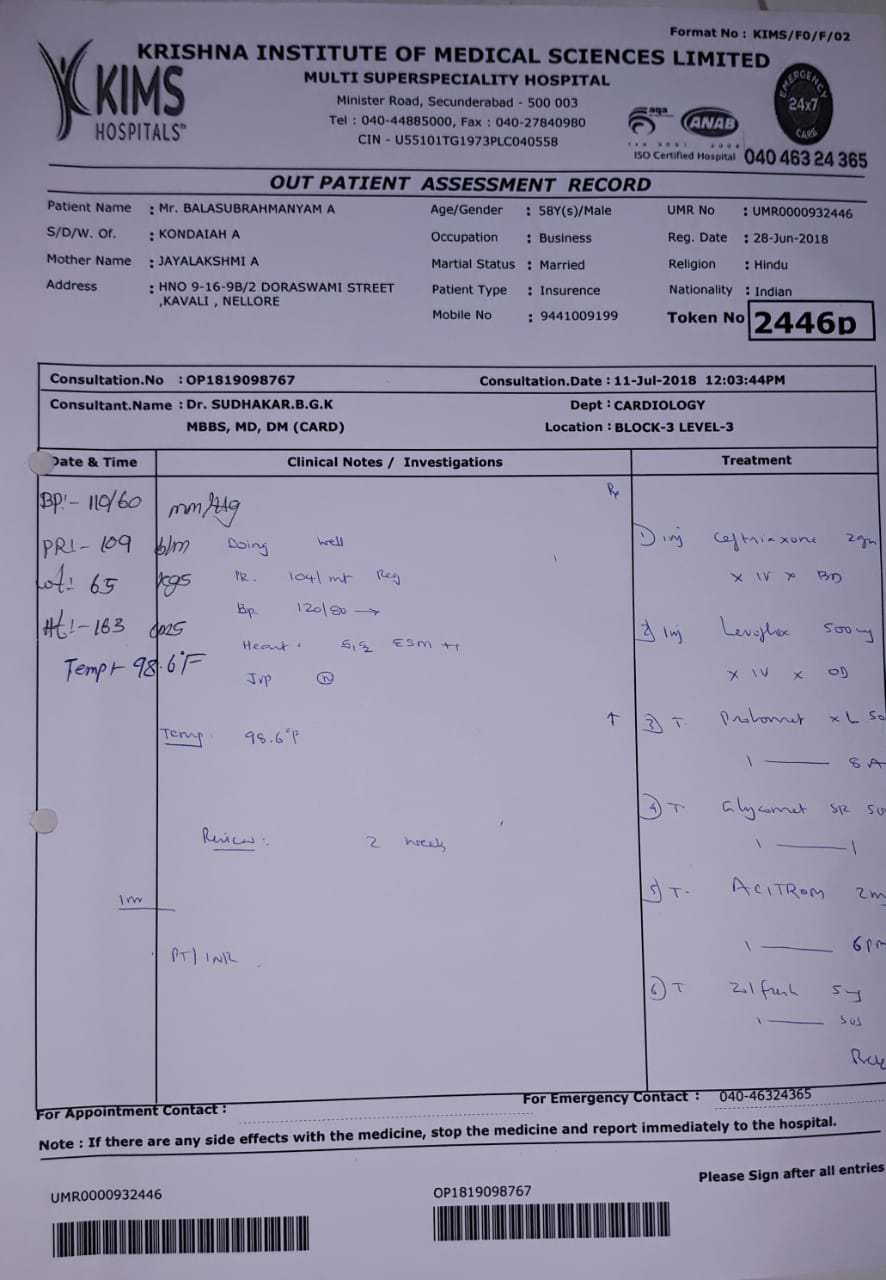 Format No : KIMS/FO/F/02
KRISHNA INSTITUTE OF MEDICAL SCIENCES LIMITED
KIMS
HOSPITALS™
MULTI SUPERSPECIALITY HOSPITAL
Minister Road, Secunderabad - 500 003
Tel : 040-44885000, Fax : 040-27840980
CIN - U55101TG1973PLC040558
aqa
ANAB
ISO Certified Hospital
EMERGENCY
24x7
CARE
040 463 24 365
OUT PATIENT ASSESSMENT RECORD
Patient Name : Mr. BALASUBRAHMANYAM A Age/Gender : 58Y(s)/Male UMR No : UMR0000932446
S/D/W. Of. : KONDAIAH A Occupation : Business Reg. Date : 28-Jun-2018
Mother Name : JAYALAKSHMI A Martial Status : Married Religion : Hindu
Address : HNO 9-16-9B/2 DORASWAMI STREET Patient Type : Insurence Nationality : Indian
,KAVALI , NELLORE Mobile No : 9441009199 Token No 2446p
Consultation.No : OP1819098767 Consultation.Date : 11-Jul-2018 12:03:44PM
Consultant.Name : Dr. SUDHAKAR.B.G.K Dept : CARDIOLOGY
MBBS, MD, DM (CARD) Location : BLOCK-3 LEVEL-3
Date & Time Clinical Notes / Investigations Treatment
BP:- 110/60 mm/Hg
PR:- 109 b/m
wt: 65 kgs
Ht:- 163 cms
Temp:- 98.6°F
Doing well
PR. 104/ mt Reg
Bp. 120/80
Heart : S1S2 ESM +
JVP N
Temp. 98.6°F
Review : 2 week
PT/ INR
Rx
1) inj Ceftriaxone 2gm
x IV x BD
2) inj Levoflox 500mg
x IV x OD
3) T. xL 50
1 — 8 A
4) T Glycomet SR 50
1 — 1
5) T. ACITROM 2m
1 — 6pm
6) T Zolfresh 5mg
1 — sos
For Appointment Contact :
For Emergency Contact : 040-46324365
Note : If there are any side effects with the medicine, stop the medicine and report immediately to the hospital.
Please Sign after all entries
UMR0000932446
OP1819098767